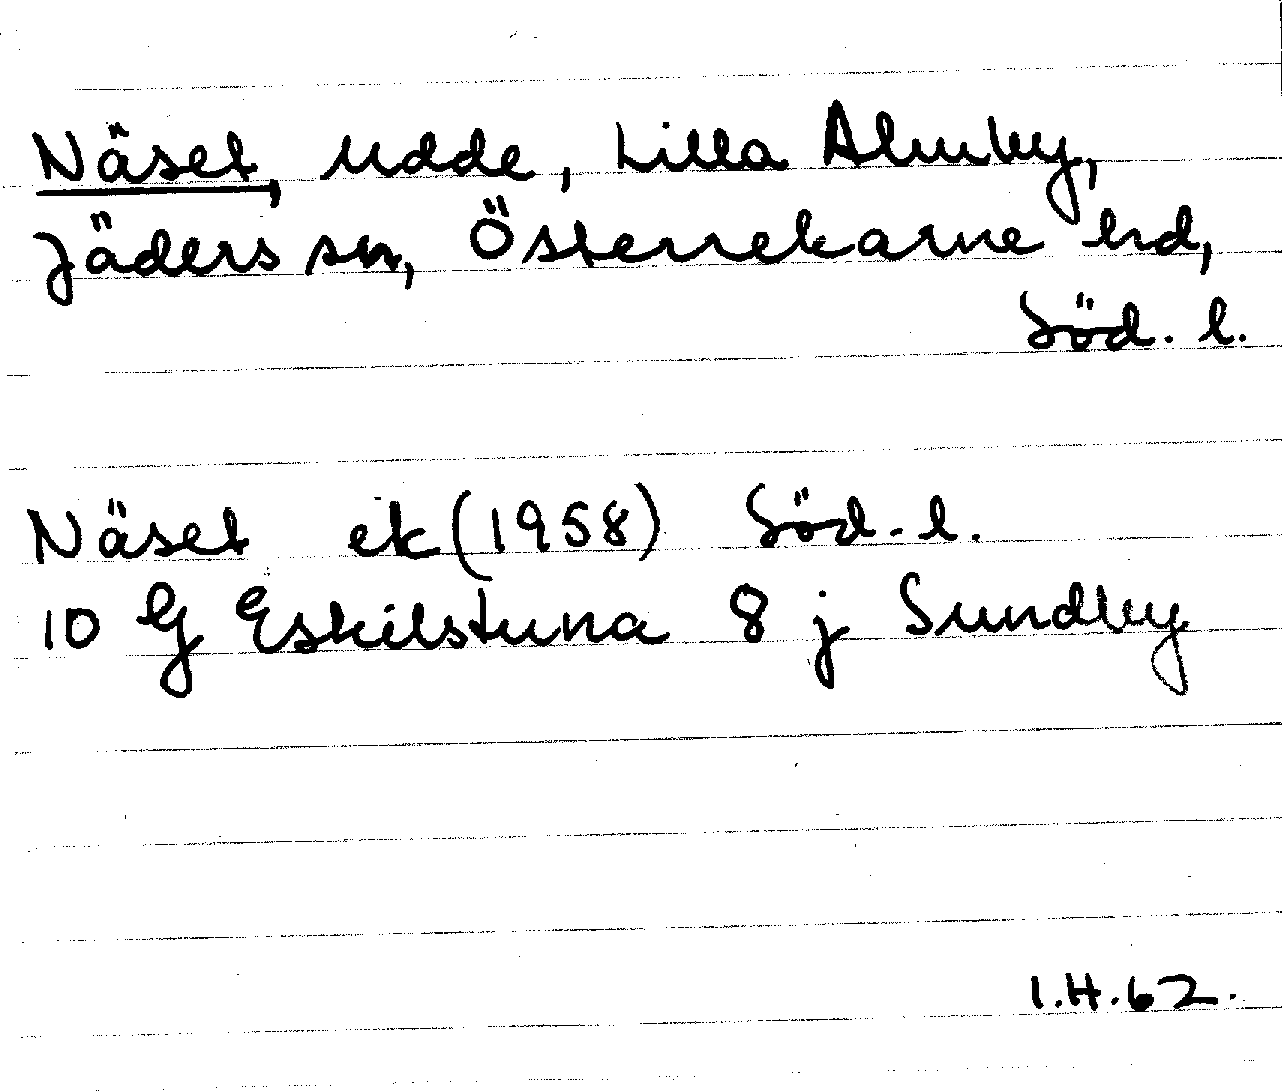 Näset, udde, Lilla Almby,
Jäders sn, Österrekarne hd,
Söd. l.
Näset ek (1958) Söd. l.
10 G Eskilstuna 8 j Sundby
I.H.62.